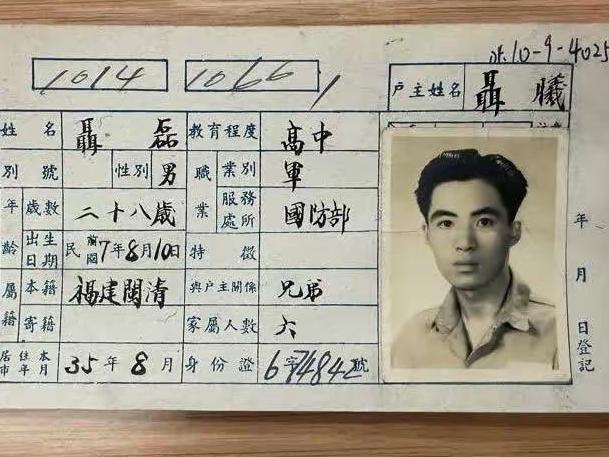 水.10-9-4025
1014 1066 1
戶主姓名 聶曦
姓名 聶磊 教育程度 高中
別號 性別 男 職業 業別 軍
年齡 歲數 二十八歲 服務處所 國防部
出生日期 民國前7年8月10日 特徵
屬籍 本籍 福建閩清 與戶主關係 兄弟
寄籍 家屬人數 六
居住本市年月 35年8月 身份證 6字7484號
年月日登記